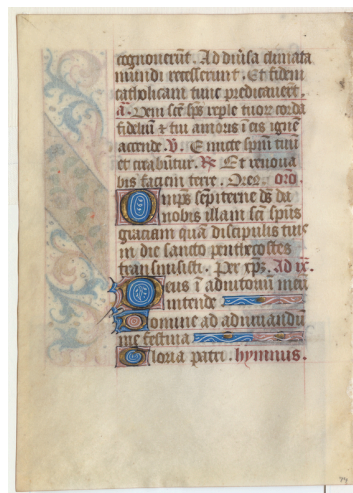 cognoverūt. Ad diūsa climata
mundi recesserunt. Et fidem
catholicam tunc predicauerūt.
a. Veni scē sp̄s reple tuorꝫ corda
fideliū ⁊ tui amoris ī eis ignē
accende. V. Emicte spm̄ tuū
et creabūtur. R̷ Et renoua
bis faciem terre. Oremꝰ. oro.
Omp̄s sēpiterne ds̄ da
nobis illam scī sp̄us
graciam quā discipulis tuis
in die sancto penthecostes
transmisisti. Per xp̄ꝫ. Ad ix.
Deus ī adiutoriū meū
intende
Domine ad adiuuandū
me festina
Gloria patri. hymnus.